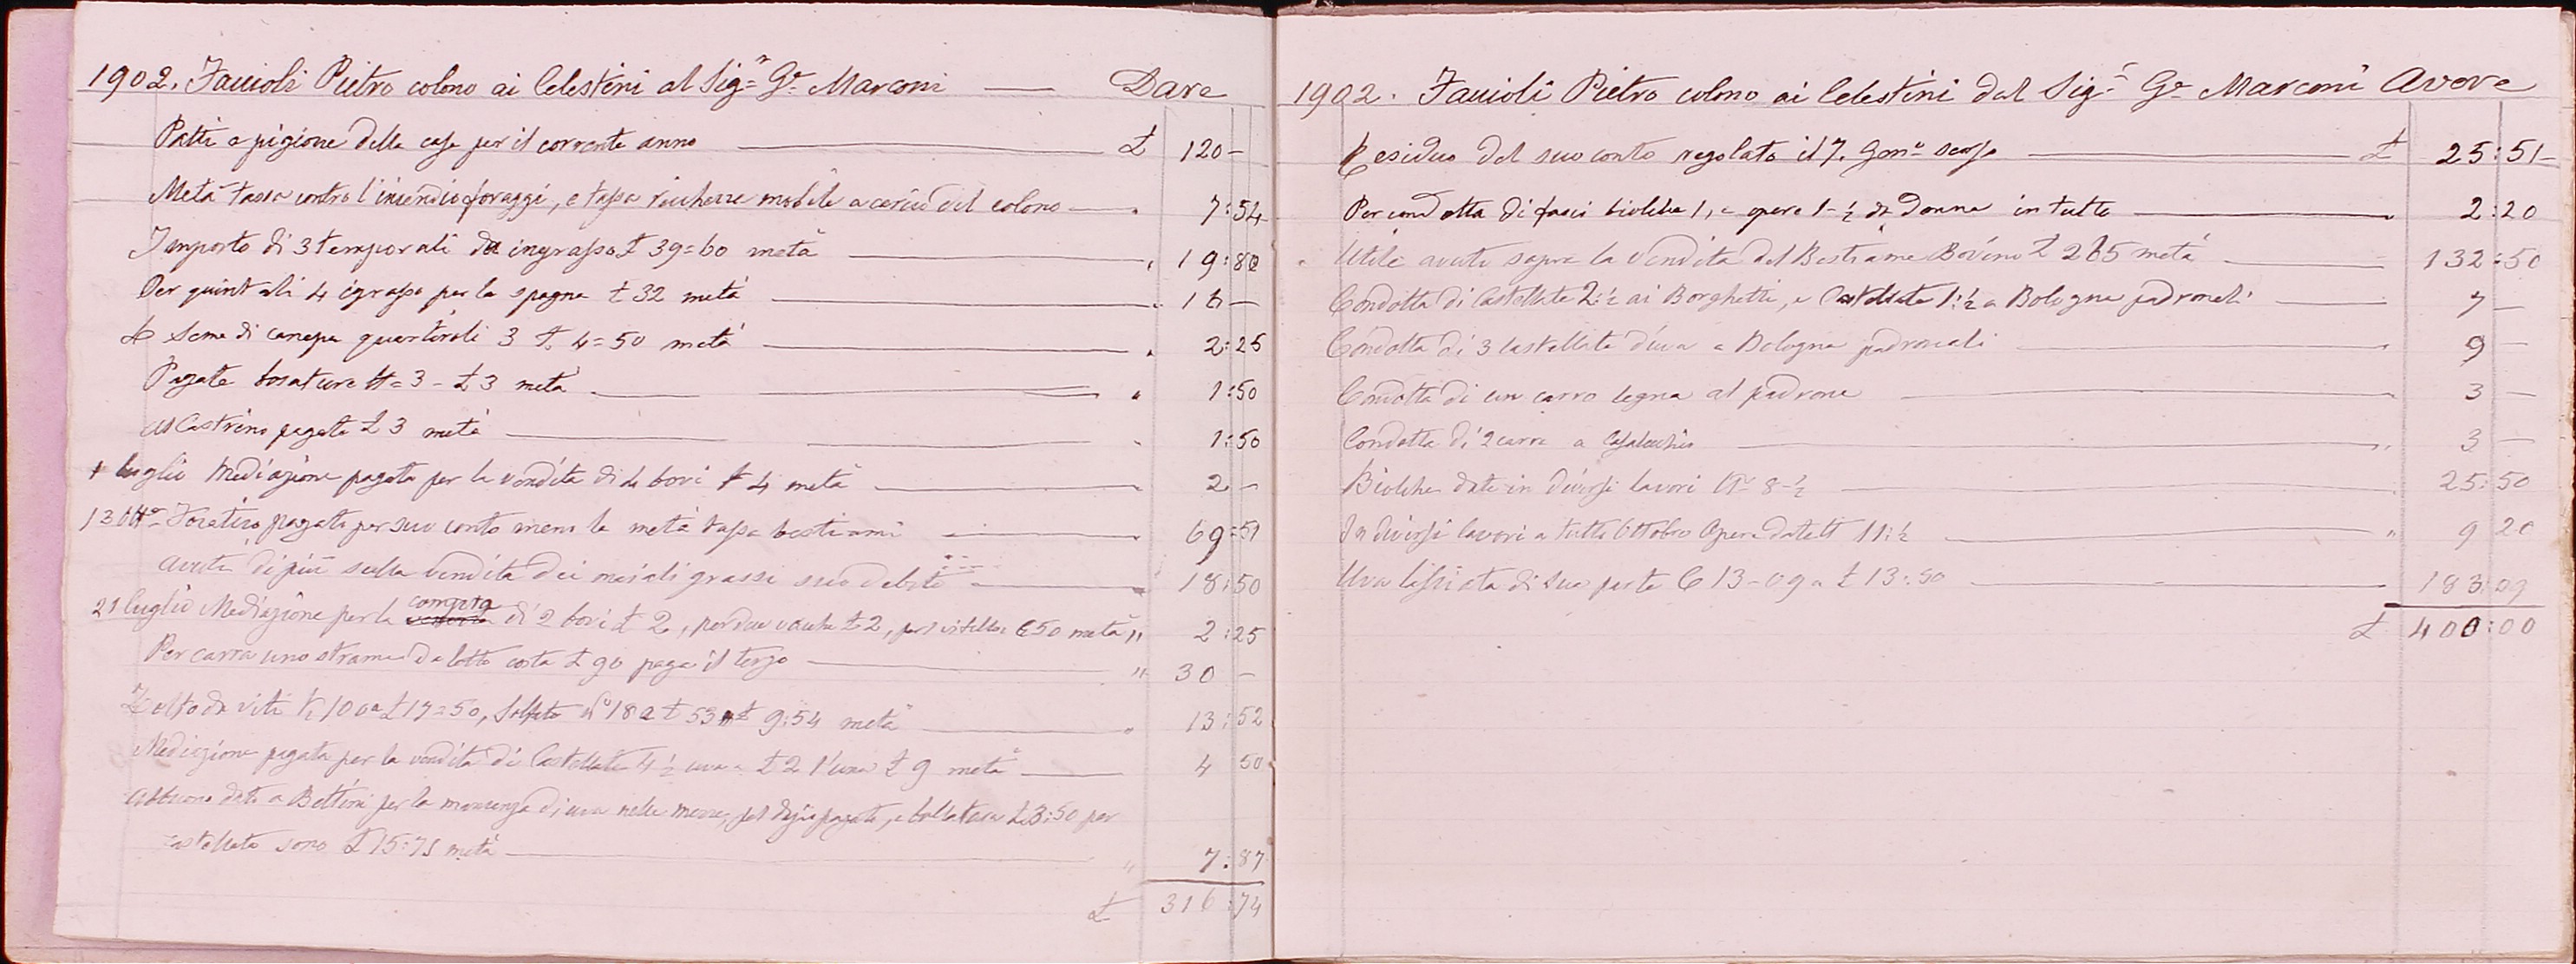 1902. Faccioli Pietro colono ai Celestini al Sigr Ge Marconi — Dare
Patti e pigione della casa per il corrente anno — £ 120 –
Metà tassa contro l'incendio foraggi, e tassa ricchezze mobile a carico del colono — " 7:54
Importo di 3 temporali da ingrasso £ 39=60 metà — " 19:80
Per quintali 4 igrasso per la spagna £ 32 metà — " 16 –
Seme di canepa quartiroli 3 £ 4=50 metà — " 2:25
Pagate tosature N= 3 – £ 3 metà — " 1:50
Al Castrino pagate £ 3 metà — " 1:50
1 luglio Mediazione pagata per la vendita di 4 bovi £ 4 metà — 2 –
13 Otto pagati per suo conto meno la metà tassa bestiami — 69=51
Avuti di più sulla vendita dei maiali grassi suo debito — 18:50
21 luglio Mediazione per la compra di 2 bovi £ 2, per due vacche £ 2, per 1 vitello 0:50 metà " 2:25
Per carra uno strame da lotto costa £ 90 paga il terzo — " 30 –
Zolfo da viti K 100 a £ 17=50, Solfato No 18 a £ 53 £ 9:54 metà — " 13:52
Mediazione pagata per la vendita di Castellate 4 ½ uva a £ 2 l'una £ 9 metà — 4 50
Abbuono dato a Bettini per la mancanza di uva nelle pagate, e bollatura £ 3:50 per
castellata sono £ 15:75 metà — " 7:87
£ 316:74
1902. Faccioli Pietro colono ai Celestini dal Sigr Ge Marconi Avere
Residuo del suo conto regolato il 7. Genno scorso — £ 25:51 –
Per condotta di fasci bioliche 1, e opere 1-½ da Donna in tutto — 2:20
Utile avuto sopra la Vendita del Bestiame Bovino £ 265 metà — 132:50
Condotta di Castellate 2:½ ai Borghetti, e Castellate 1:½ a Bologna padronali — 7 –
Condotta di 3 castellate d'uva a Bologna padronali — 9 –
Condotta di un carro legna al padrone — 3 –
Condotta di 2 carra a Casalecchio — " 3 –
Bioliche date in diversi lavori No 8-½ — 25:50
In diversi lavori a tutto Ottobre Opere date N 11:½ — " 9 20
Uva lasciata di sua parte C 13-09 a £ 13:50 — 183:09
£ 400:00